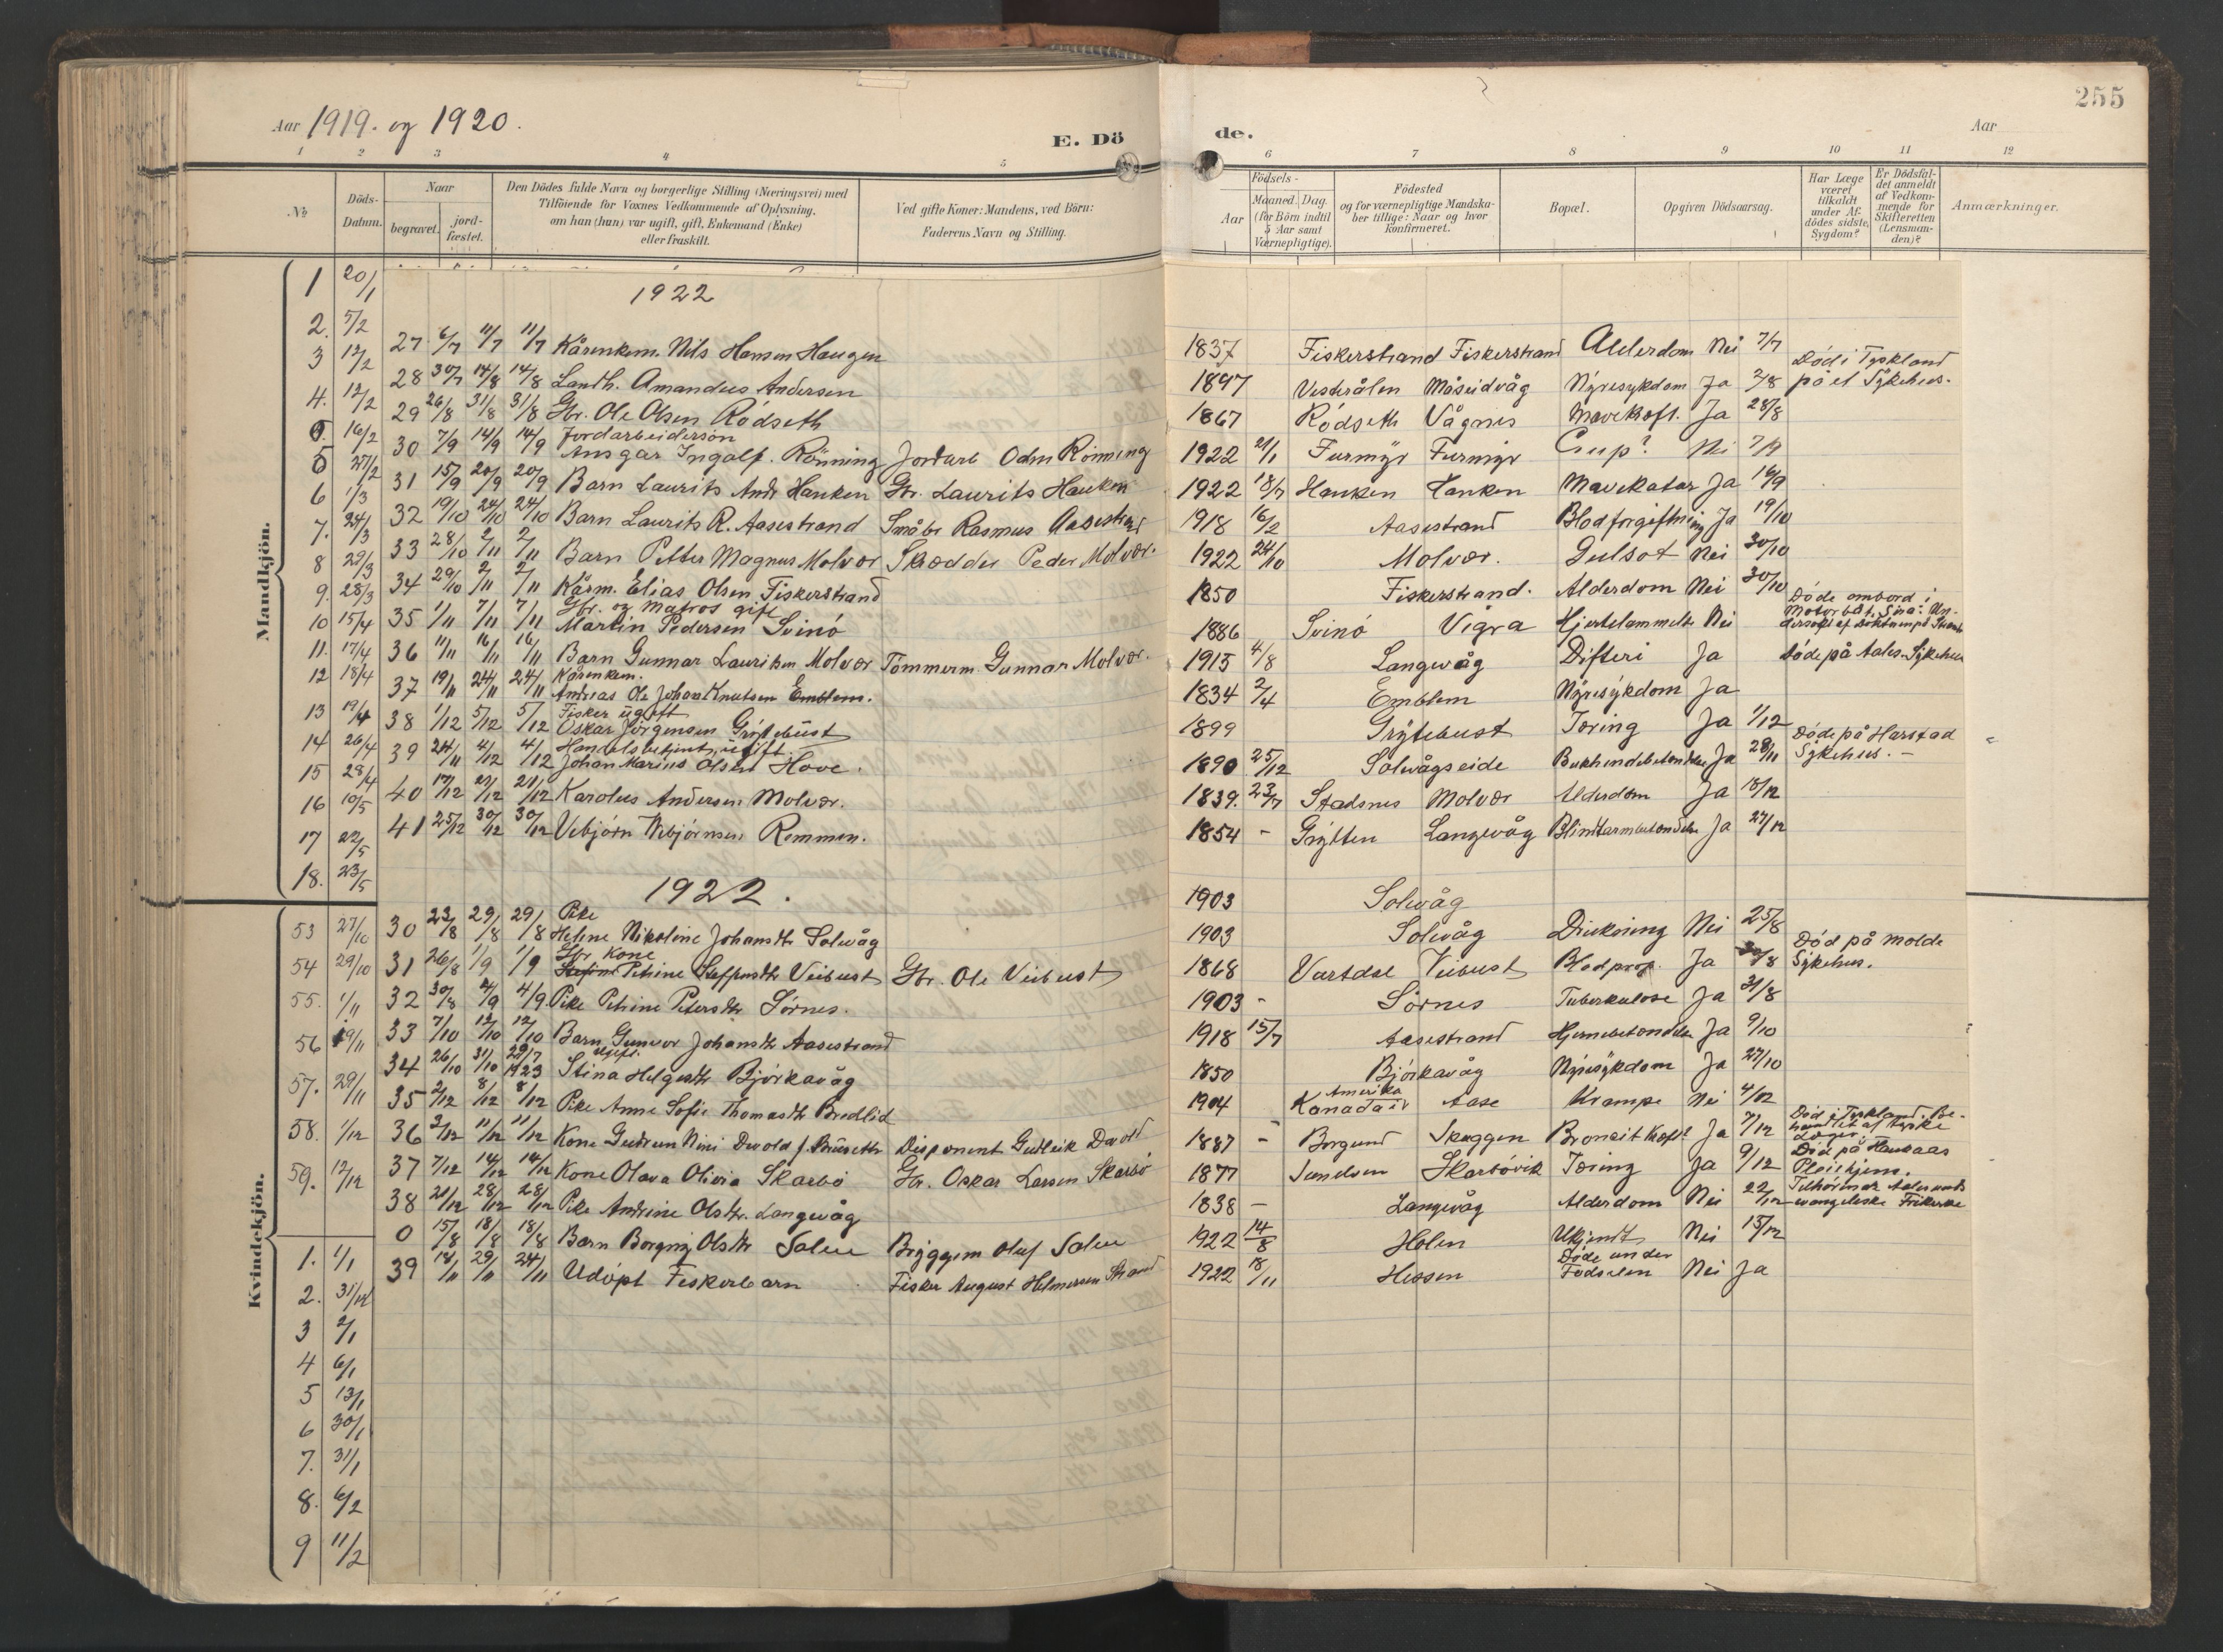 255
Aar 1919. og 1920.
E. Dö de.
Aar
1 2 3 4 5 6 7 8 9 10 11 12
№
Döds-Datum.
Naar begravet. jordfæstet.
Den Dödes fulde Navn og borgerlige Stilling (Næringsvei) med Tilföiende for Voxnes Vedkommende af Oplysning, om han (hun) var ugift, gift, Enkemand (Enke) eller fraskilt.
Ved gifte Koner: Mandens, ved Börn: Faderens Navn og Stilling.
Födsels-
Aar
Maaned. Dag. (for Börn indtil 5 Aar samt Værnepligtige).
Födested og for værnepligtige Mandskaber tillige: Naar og hvor konfirmeret.
Bopæl.
Opgiven Dödsaarsag.
Har Læge været tilkaldt under Afdödes sidste Sygdom?
Er Dödsfaldet anmeldt af Vedkommende for Skifteretten (Lensmanden)?
Anmærkninger.
Mandkjön.
1 20/1
2. 5/2
3 12/2
4. 12/2
5. 16/2
5 27/2
6 1/3
7. 24/3
8 29/3
9. 28/3
10 15/4
11. 17/4
12 18/4
13 19/4
14 26/4
15 28/4
16 10/5
17 22/5
18. 23/5
1922
27 6/7 11/7 11/7 Kårenkem. Nils Hansen Haugen 1837 Fiskerstrand Fiskerstrand Alderdom Nei 7/7
28 30/7 14/8 14/8 Landh. Amandus Andersen 1897 Vesterålen Måseidvåg Nyresykdom Ja 2/8 Död i Tyskland på et Sykehus.
29 26/8 31/8 31/8 Gbr. Ole Olsen Rödseth 1867 Rödseth Vågnes Mavekræft. Ja 28/8
30 7/9 14/9 14/9 Jordarbeidersön Ansgar Ingolf. Rönning Jordarb Odin Rönning 1922 21/1 Furmyr Furmyr Crup? Nei 7/9
31 15/9 20/9 20/9 Barn Laurits Andr Hanken Gbr. Laurits Hanken 1922 18/7 Hanken Hanken Mavekatar Ja 16/9
32 19/10 24/10 24/10 Barn Laurits R. Aasestrand Småbr Rasmus Aasestrand 1918 16/2 Aasestrand Blodforgiftning Ja 19/10
33 28/10 2/11 2/11 Barn Petter Magnus Molvær Skrædder Peder Molvær. 1922 24/10 Molvær. Gulsot Nei 30/10
34 29/10 2/11 2/11 Kårm. Elias Olsen Fiskerstrand 1850 Fiskerstrand. Alderdom Nei 30/10
35 1/11 7/11 7/11 Gbr. og Matros gift Martin Pedersen Svinö 1886 Svinö Vigra Hjertelammelse Nei Döde ombord i Motorbåt
36 11/11 16/11 16/11 Barn Gunnar Lauritsen Molvær Tömmerm. Gunnar Molvær. 1915 4/8 Langevåg Difteri Ja döde på Aales. Sykehus
37 19/11 24/11 24/11 Kårenkem. Andreas Ole Johan Knutsen Emblem. 1834 2/4 Emblem Nyresykdom Ja
38 1/12 5/12 5/12 Fisker ugift Oskar Jörgensen Grytebust 1899 Grytebust Tæring Ja 1/12
39 24/11 4/12 4/12 Handelsbetjent, ugift. Johan Marius Olsen Hove. 1890 25/12 Solevågseide Bukhindebetændelse Ja 28/11 Döde på Harstad Sykehus. –
40 17/12 21/12 21/12 Karolus Andersen Molvær. 1839. 23/7 Stadsnes Molvær Alderdom Ja 18/12
41 25/12 30/12 30/12 Vebjörn Vebjörnsen Remmen. 1854 – Grytten Langevåg Blindtarmbetændelse Ja 27/12
1922.
Kvindekjön.
53 27/10
54 29/10
55. 1/11
56 19/11
57. 29/11
58. 1/12
59. 12/12
1. 1/1
2. 31/12
3 2/1
4 6/1
5 13/1
6 30/1
7. 31/1
8. 6/2
9 11/2
1903 Solevåg
30 23/8 29/8 29/8 Pike Heline Nikoline Johansdtr Solevåg 1903 Solevåg Drukning Nei 25/8
31 26/8 1/9 1/9 Gbr Kone Petrine Steffensdtr Veibust Gbr. Ole Veibust 1868 Vartdal Veibust Blodprop. Ja 30/8 Död på Molde Sykehus.
32 30/8 4/9 4/9 Pike Petrine Petersdtr Sörnes. 1903 – Sörnes Tuberkulose Ja 31/8
33 7/10 12/10 12/10 Barn Gunvor Johansdtr Aasestrand 1918 15/7 Aasestrand Hjernebetændelse Ja 9/10
34 26/10 31/10 29/7 1923 Ugift. Stina Helgesdtr Björkavåg 1850 Björkavåg Nyresykdom Ja 27/10
35 2/12 8/12 8/12 Pike Anne Sofie Thomasdtr Bredlid 1904 Amerika Kanada Aase Krampe Nei 4/12
36 2/12 11/12 11/12 Kone Gudrun Nini Devold f. Brüseth Disponent Gudleik Devold 1887 – Borgund Skuggen Bronkit Kræft? Ja 7/12 Död i Tyskland. Behandlet af tyske Læger
37 7/12 14/12 14/12 Kone Olava Olivia Skarbö Gbr. Oskar Larsen Skarbö 1877 Skarbövik Tæring Ja 9/12 Död på Pleiehjem.
38 21/12 28/12 28/12 Pike Andrine Olsdtr. Langevåg 1838 – Langevåg Alderdom Nei 22/12 Tilhörende Aalesunds evangeliske Frikirke
0 15/8 18/8 18/8 Barn Borgny Olsdtr Salen Bryggem Oluf Salen 1922 14/8 Holen Ukjendt Nei 15/12
39 18/11 29/11 24/11 Udöpt Fiskerbarn Fisker August Helmersen Strand 1922 18/11 Hessen Döde under Födselen Nei Ja